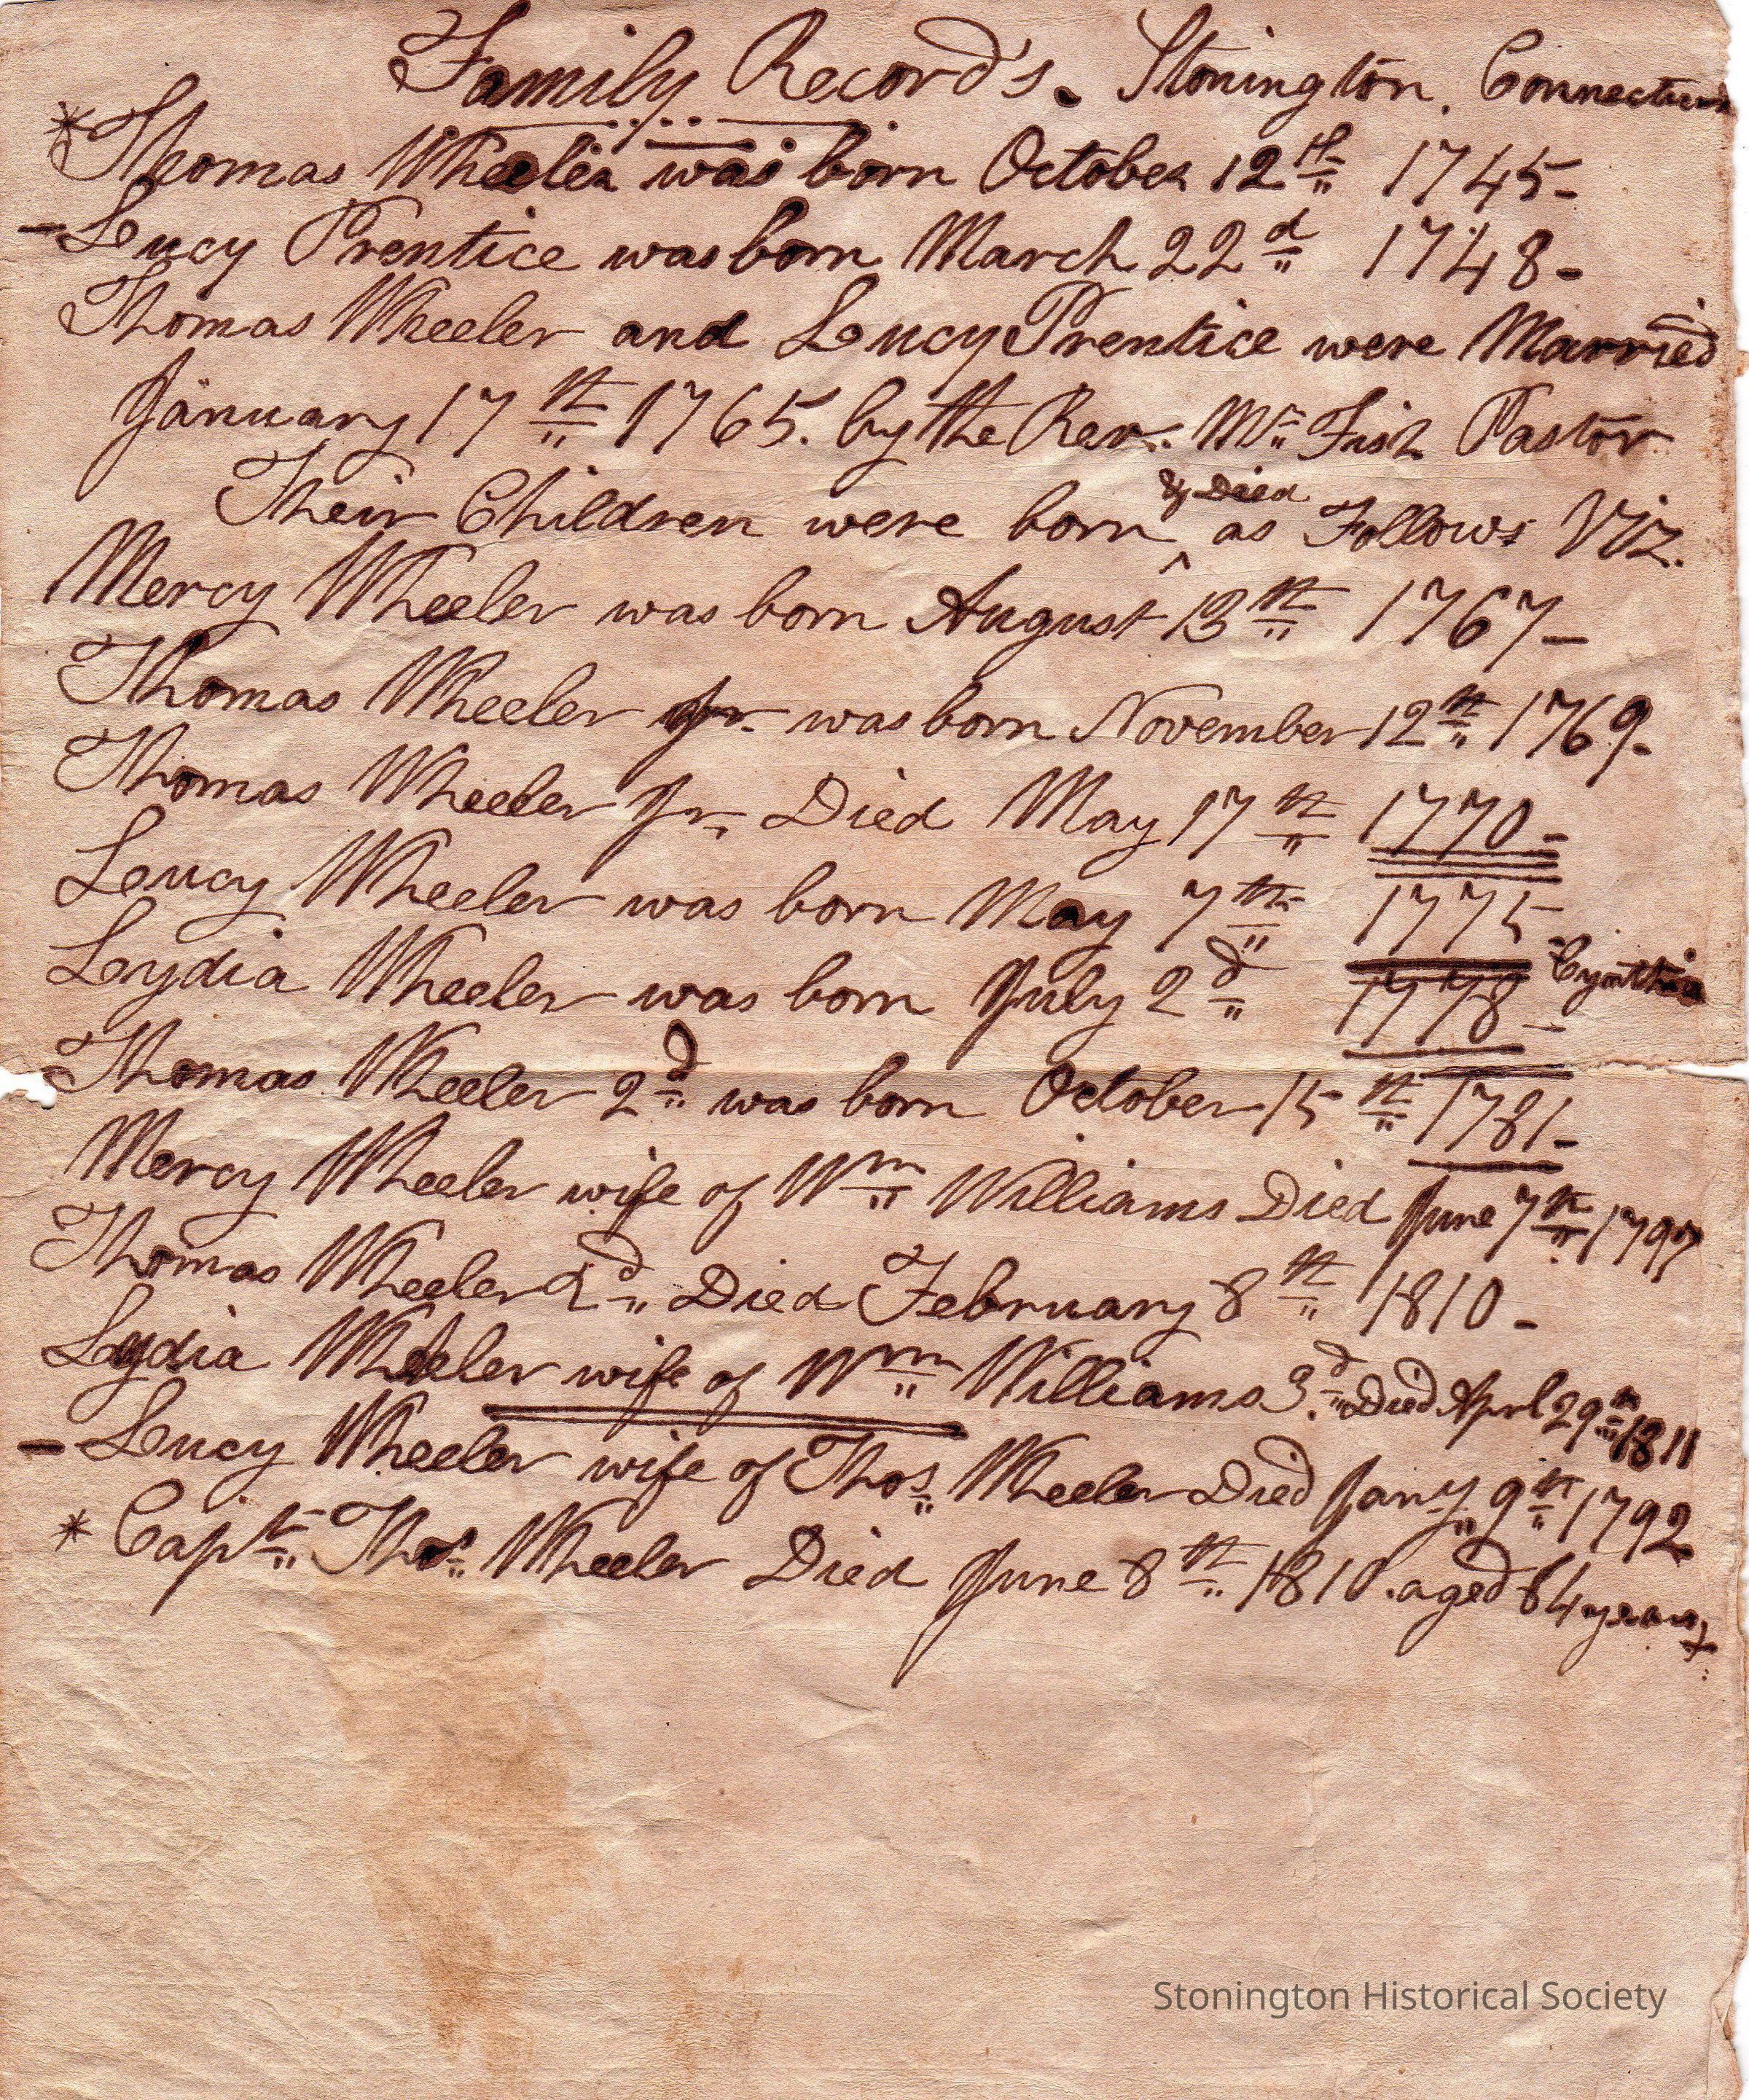 Family Record's. Stonington. Connecticut
* Thomas Wheeler was born October 12th 1745-
- Lucy Prentice was born March 22d 1748-
Thomas Wheeler and Lucy Prentice were Married
January 17th 1765. by the Rev. Mr Fish Pastor
& Died
Their Children were born ^ as Follows Viz.
Mercy Wheeler was born August 13th 1767-
Thomas Wheeler Jr. was born November 12th 1769-
Thomas Wheeler Jr. Died May 17th 1770-
Lucy Wheeler was born May 7th 1775-
Lydia Wheeler was born July 2d 1778- Cynthia
Thomas Wheeler 2d was born October 15th 1781-
Mercy Wheeler wife of Wm Williams Died June 7th 1797
Thomas Wheeler 2d Died February 8th 1810-
Lydia Wheeler wife of Wm Williams 3d Died Aprl 29th 1811
- Lucy Wheeler wife of Thos Wheeler Died Jany 9th 1792
* Capt Thos Wheeler Died June 8th 1810. aged 64 years
Stonington Historical Society